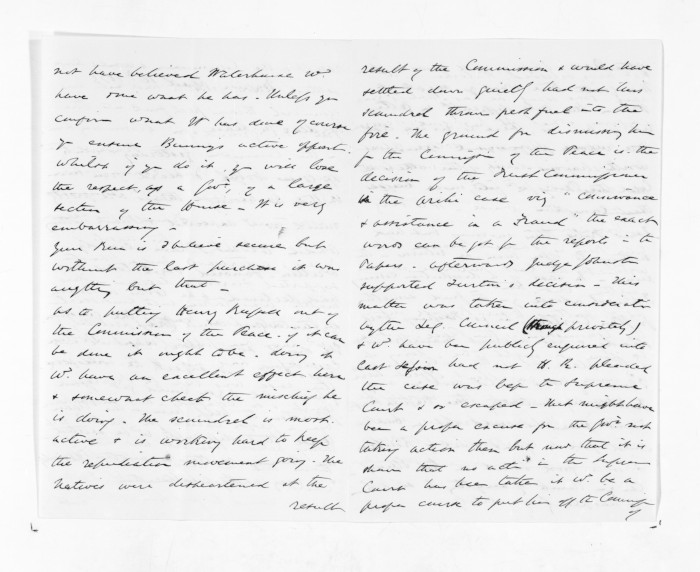 not have believed Waterhouse wd.
have done what he has. Unless you
confirm what W has done of course
you ensure Bunny's active opposn.
Whilst if you do it you will lose
the respect, as a Govt, of a large
section of the House - It is very
embarrassing -
Your Run is I believe secure but
without the last purchase it was
anything but that -
As to putting Henry Russell out of
the Commission of the Peace. if it can
be done it ought to be. doing it
wd. have an excellent effect here
& somewhat check the mischief he
is doing. The scoundrel is most
active & is working hard to keep
the repudiation movement going. The
Natives were disheartened at the
result
result of the Commission & would have
settled down quietly had not this
scoundrel thrown fresh fuel into the
fire. The ground for dismissing him
fr the Commissn of the Peace is the
decision of the Trust Commissioner
in the Arihi case viz "Connivance
& assistance in a Fraud" the exact
words can be got fr the reports in the
Papers. afterwards Judge Johnston
supported Turton's decision - This
matter was taken into consideration
by the Leg. Council (though privately)
& wd. have been publicly enquired into
last Session had not H. R. pleaded
the case was befo the Supreme
Court & so escaped - That might have
been a proper excuse for the Govt not
taking action then but now that it is
shown that no actn in the Supreme
Court has been taken it wd. be a
proper course to put him off the Commissn
of